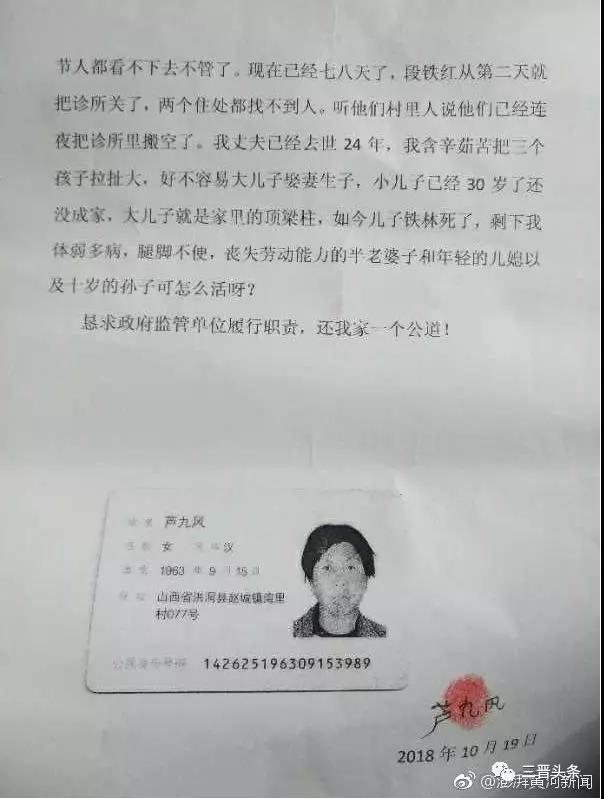 节人都看不下去不管了。现在已经七八天了，段铁红从第二天就
把诊所关了，两个住处都找不到人。听他们村里人说他们已经连
夜把诊所里搬空了。我丈夫已经去世 24 年，我含辛茹苦把三个
孩子拉扯大，好不容易大儿子娶妻生子，小儿子已经 30 岁了还
没成家，大儿子就是家里的顶梁柱，如今儿子铁林死了，剩下我
体弱多病，腿脚不便，丧失劳动能力的半老婆子和年轻的儿媳以
及十岁的孙子可怎么活呀？
恳求政府监管单位履行职责，还我家一个公道！
芦九风
女 汉
1963 年 9 月 15 日
山西省洪洞县赵城镇湾里
村077号
公民身份号码 142625196309153989
芦九风
2018 年 10 月 19 日
三晋头条
@澎湃黄河新闻